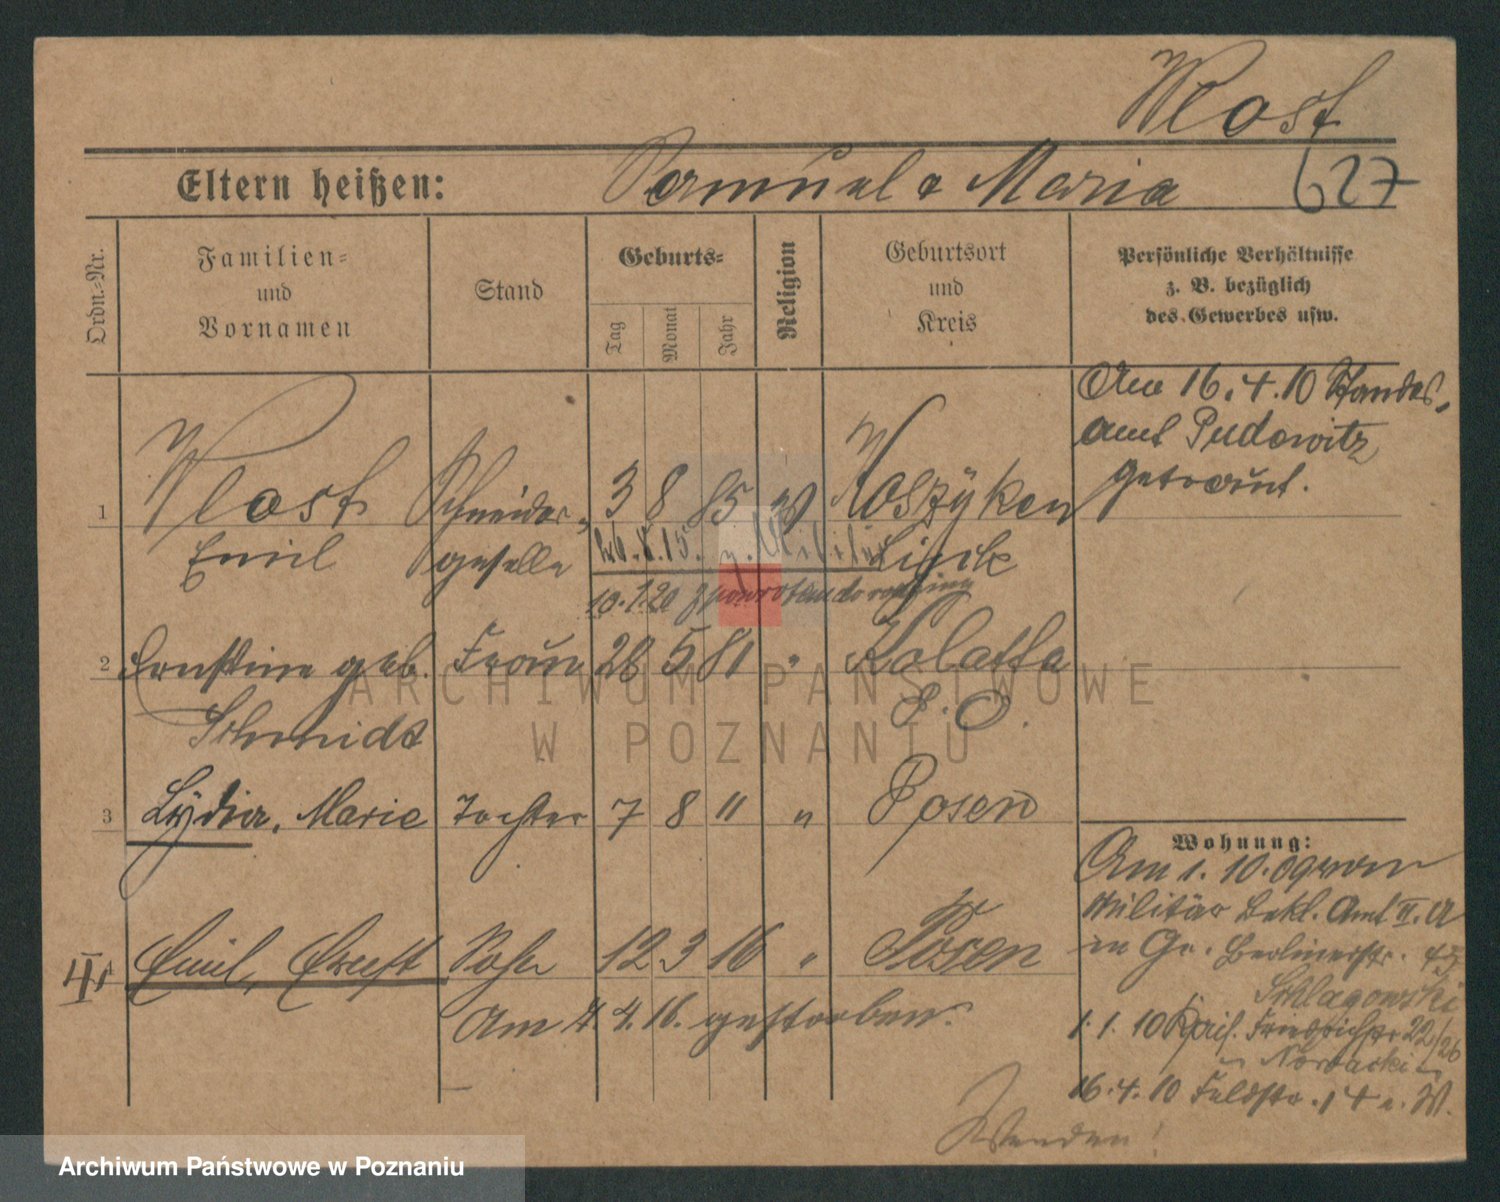 Wlost
627
Eltern heißen: Samuel & Maria
Ordn.-Nr.
Familien=
und
Vornamen
Stand
Geburts=
Tag
Monat
Jahr
Religion
Geburtsort
und
Kreis
Persönliche Verhältnisse
z. B. bezüglich
des Gewerbes usw.
Am 16.4.10 Standes-
amt Pudewitz
getraut.
1 Wlost Schneider- 3 8 85 Woszyken
Emil geselle
26.8.15. z. Militär Linck
10.1.20
2 Ernstine geb. Frau 28 5 81 " Kolatka
Schmidt P. O.
3 Lydia, Marie Tochter 7 8 " " Posen
Emil, Ernst Sohn 12 3 16 " Posen
Am 4.4.16. gestorben.
Wohnung:
Am 1. 10. 09 von
Militär Bekl. Amt II. A
in Gr. Berlinerstr.
1. 1. 10 Friedrichstr 22/26
b. Nowacki
16.4.10 Feldstr. 14 a. W.
Wenden!
ARCHIWUM PAŃSTWOWE
W POZNANIU
Archiwum Państwowe w Poznaniu